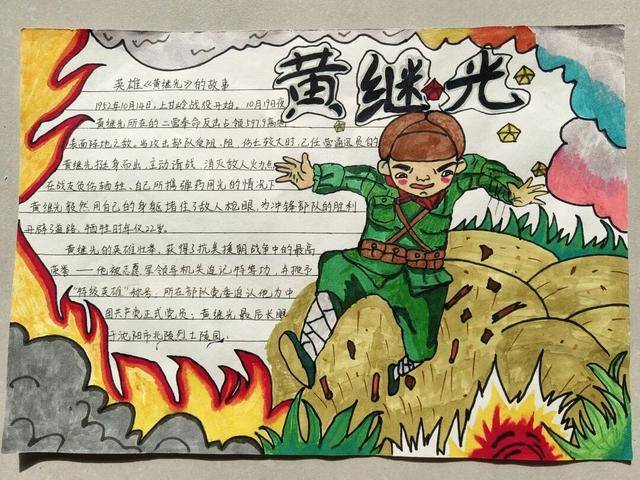 黄继光
英雄《黄继光》的故事
1952年10月14日,上甘岭战役开始。10月19日夜
黄继光所在的二营奉命反击占领597.9高地
表面阵地之敌。当攻击部队受阻,伤亡较大时,已任营通讯员的
黄继光挺身而出,主动请战,消灭敌人火力点
在战友负伤牺牲、自己所携弹药用光的情况下
黄继光毅然用自己的身躯堵住了敌人枪眼,为冲锋部队的胜利
开辟了道路,牺牲时年仅22岁。
黄继光的英雄壮举,获得了抗美援朝战争中的最高
荣誉——他被志愿军领导机关追记特等功,并授予
“特级英雄”称号,所在部队党委追认他为中
国共产党正式党员;黄继光最后长眠
于沈阳市北陵烈士陵园。